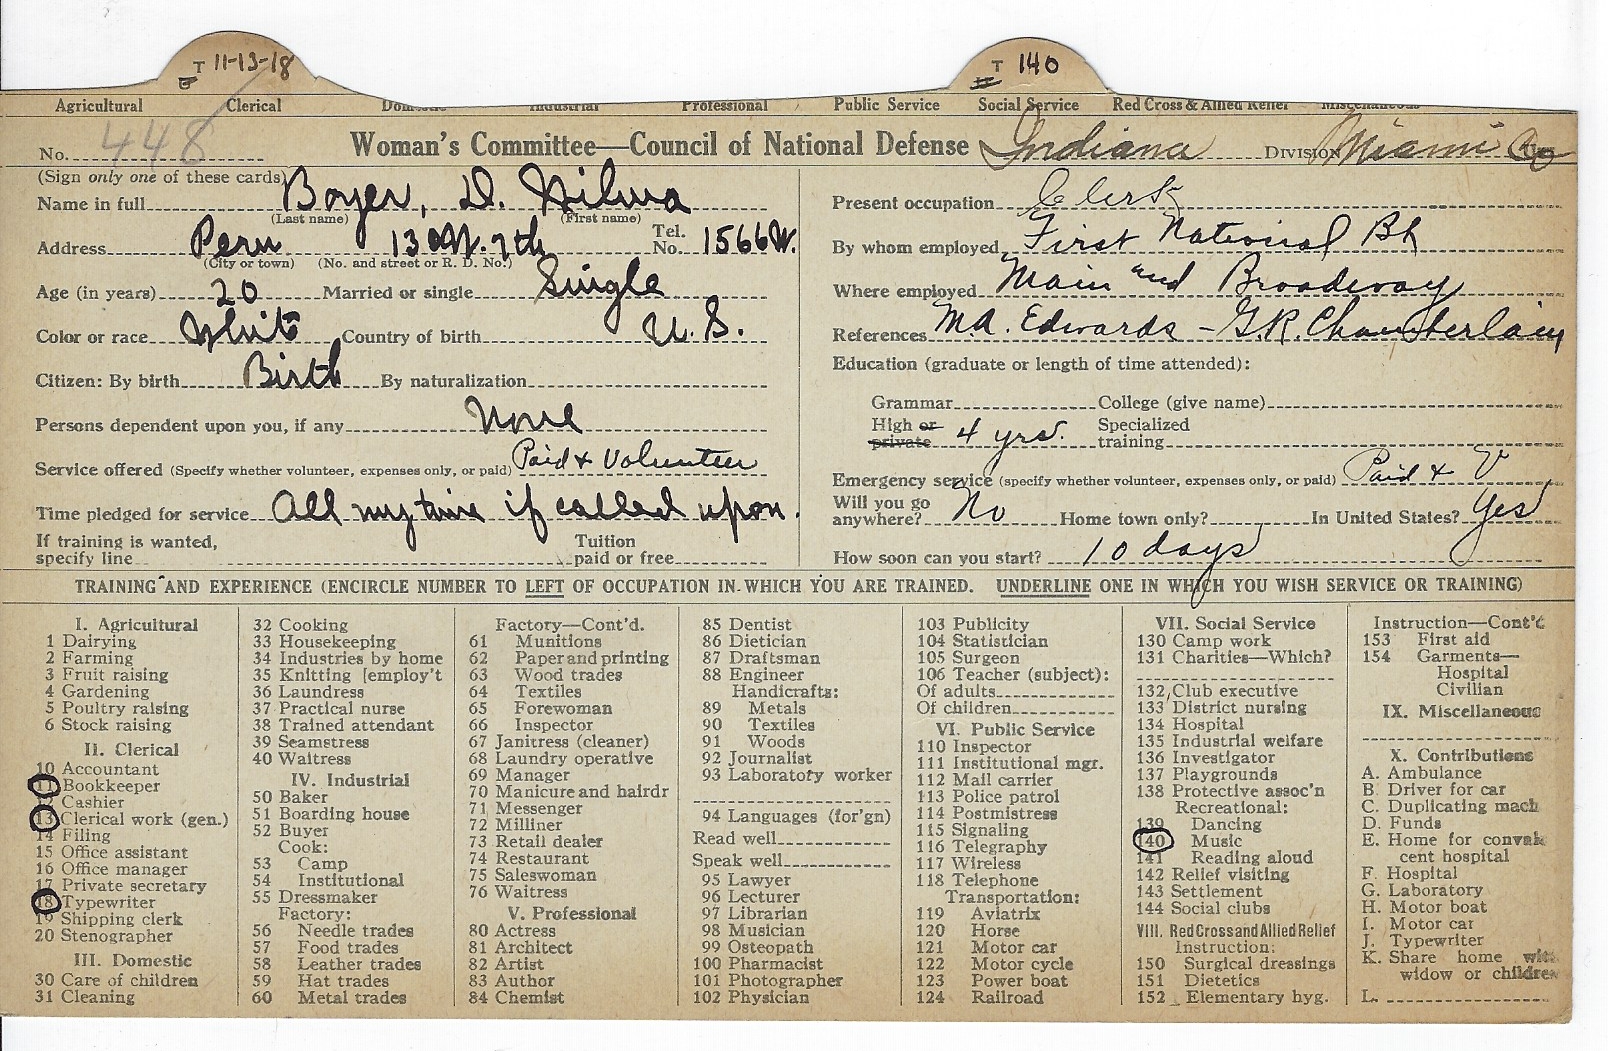 T 11-13-18
T 140
Agricultural Clerical Domestic Industrial Professional Public Service Social Service Red Cross & Allied Relief Miscellaneous
No. 448 Woman's Committee—Council of National Defense Indiana DIVISION Miami Co
(Sign only one of these cards)
Name in full Boyer, D. Hilma
(Last name) (First name)
Address Peru 130 W. 7th Tel. No. 1566W.
(City or town) (No. and street or R. D. No.)
Age (in years) 20 Married or single Single
Color or race White Country of birth U. S.
Citizen: By birth Birth By naturalization
Persons dependent upon you, if any None
Service offered (Specify whether volunteer, expenses only, or paid) Paid & Volunteer
Time pledged for service All my time if called upon.
If training is wanted, specify line Tuition paid or free
Present occupation Clerk
By whom employed First National Bk
Where employed Main and Broadway
References M.A. Edwards - G.R. Chamberlain
Education (graduate or length of time attended):
Grammar College (give name)
High or private 4 yrs. Specialized training
Emergency service (specify whether volunteer, expenses only, or paid) Paid & V
Will you go anywhere? No Home town only? In United States? Yes
How soon can you start? 10 days
TRAINING AND EXPERIENCE (ENCIRCLE NUMBER TO LEFT OF OCCUPATION IN WHICH YOU ARE TRAINED. UNDERLINE ONE IN WHICH YOU WISH SERVICE OR TRAINING)
I. Agricultural
1 Dairying
2 Farming
3 Fruit raising
4 Gardening
5 Poultry raising
6 Stock raising
II. Clerical
10 Accountant
11 Bookkeeper
12 Cashier
13 Clerical work (gen.)
14 Filing
15 Office assistant
16 Office manager
17 Private secretary
18 Typewriter
19 Shipping clerk
20 Stenographer
III. Domestic
30 Care of children
31 Cleaning
32 Cooking
33 Housekeeping
34 Industries by home
35 Knitting [employ't
36 Laundress
37 Practical nurse
38 Trained attendant
39 Seamstress
40 Waitress
IV. Industrial
50 Baker
51 Boarding house
52 Buyer
Cook:
53 Camp
54 Institutional
55 Dressmaker
Factory:
56 Needle trades
57 Food trades
58 Leather trades
59 Hat trades
60 Metal trades
Factory—Cont'd.
61 Munitions
62 Paper and printing
63 Wood trades
64 Textiles
65 Forewoman
66 Inspector
67 Janitress (cleaner)
68 Laundry operative
69 Manager
70 Manicure and hairdr
71 Messenger
72 Milliner
73 Retail dealer
74 Restaurant
75 Saleswoman
76 Waitress
V. Professional
80 Actress
81 Architect
82 Artist
83 Author
84 Chemist
85 Dentist
86 Dietician
87 Draftsman
88 Engineer
Handicrafts:
89 Metals
90 Textiles
91 Woods
92 Journalist
93 Laboratory worker
94 Languages (for'gn)
Read well
Speak well
95 Lawyer
96 Lecturer
97 Librarian
98 Musician
99 Osteopath
100 Pharmacist
101 Photographer
102 Physician
103 Publicity
104 Statistician
105 Surgeon
106 Teacher (subject):
Of adults
Of children
VI. Public Service
110 Inspector
111 Institutional mgr.
112 Mail carrier
113 Police patrol
114 Postmistress
115 Signaling
116 Telegraphy
117 Wireless
118 Telephone
Transportation:
119 Aviatrix
120 Horse
121 Motor car
122 Motor cycle
123 Power boat
124 Railroad
VII. Social Service
130 Camp work
131 Charities—Which?
132 Club executive
133 District nursing
134 Hospital
135 Industrial welfare
136 Investigator
137 Playgrounds
138 Protective assoc'n
Recreational:
139 Dancing
140 Music
141 Reading aloud
142 Relief visiting
143 Settlement
144 Social clubs
VIII. Red Cross and Allied Relief
Instruction:
150 Surgical dressings
151 Dietetics
152 Elementary hyg.
Instruction—Cont'd
153 First aid
154 Garments—
Hospital
Civilian
IX. Miscellaneous
X. Contributions
A. Ambulance
B. Driver for car
C. Duplicating mach
D. Funds
E. Home for convales
cent hospital
F. Hospital
G. Laboratory
H. Motor boat
I. Motor car
J. Typewriter
K. Share home with
widow or children
L.